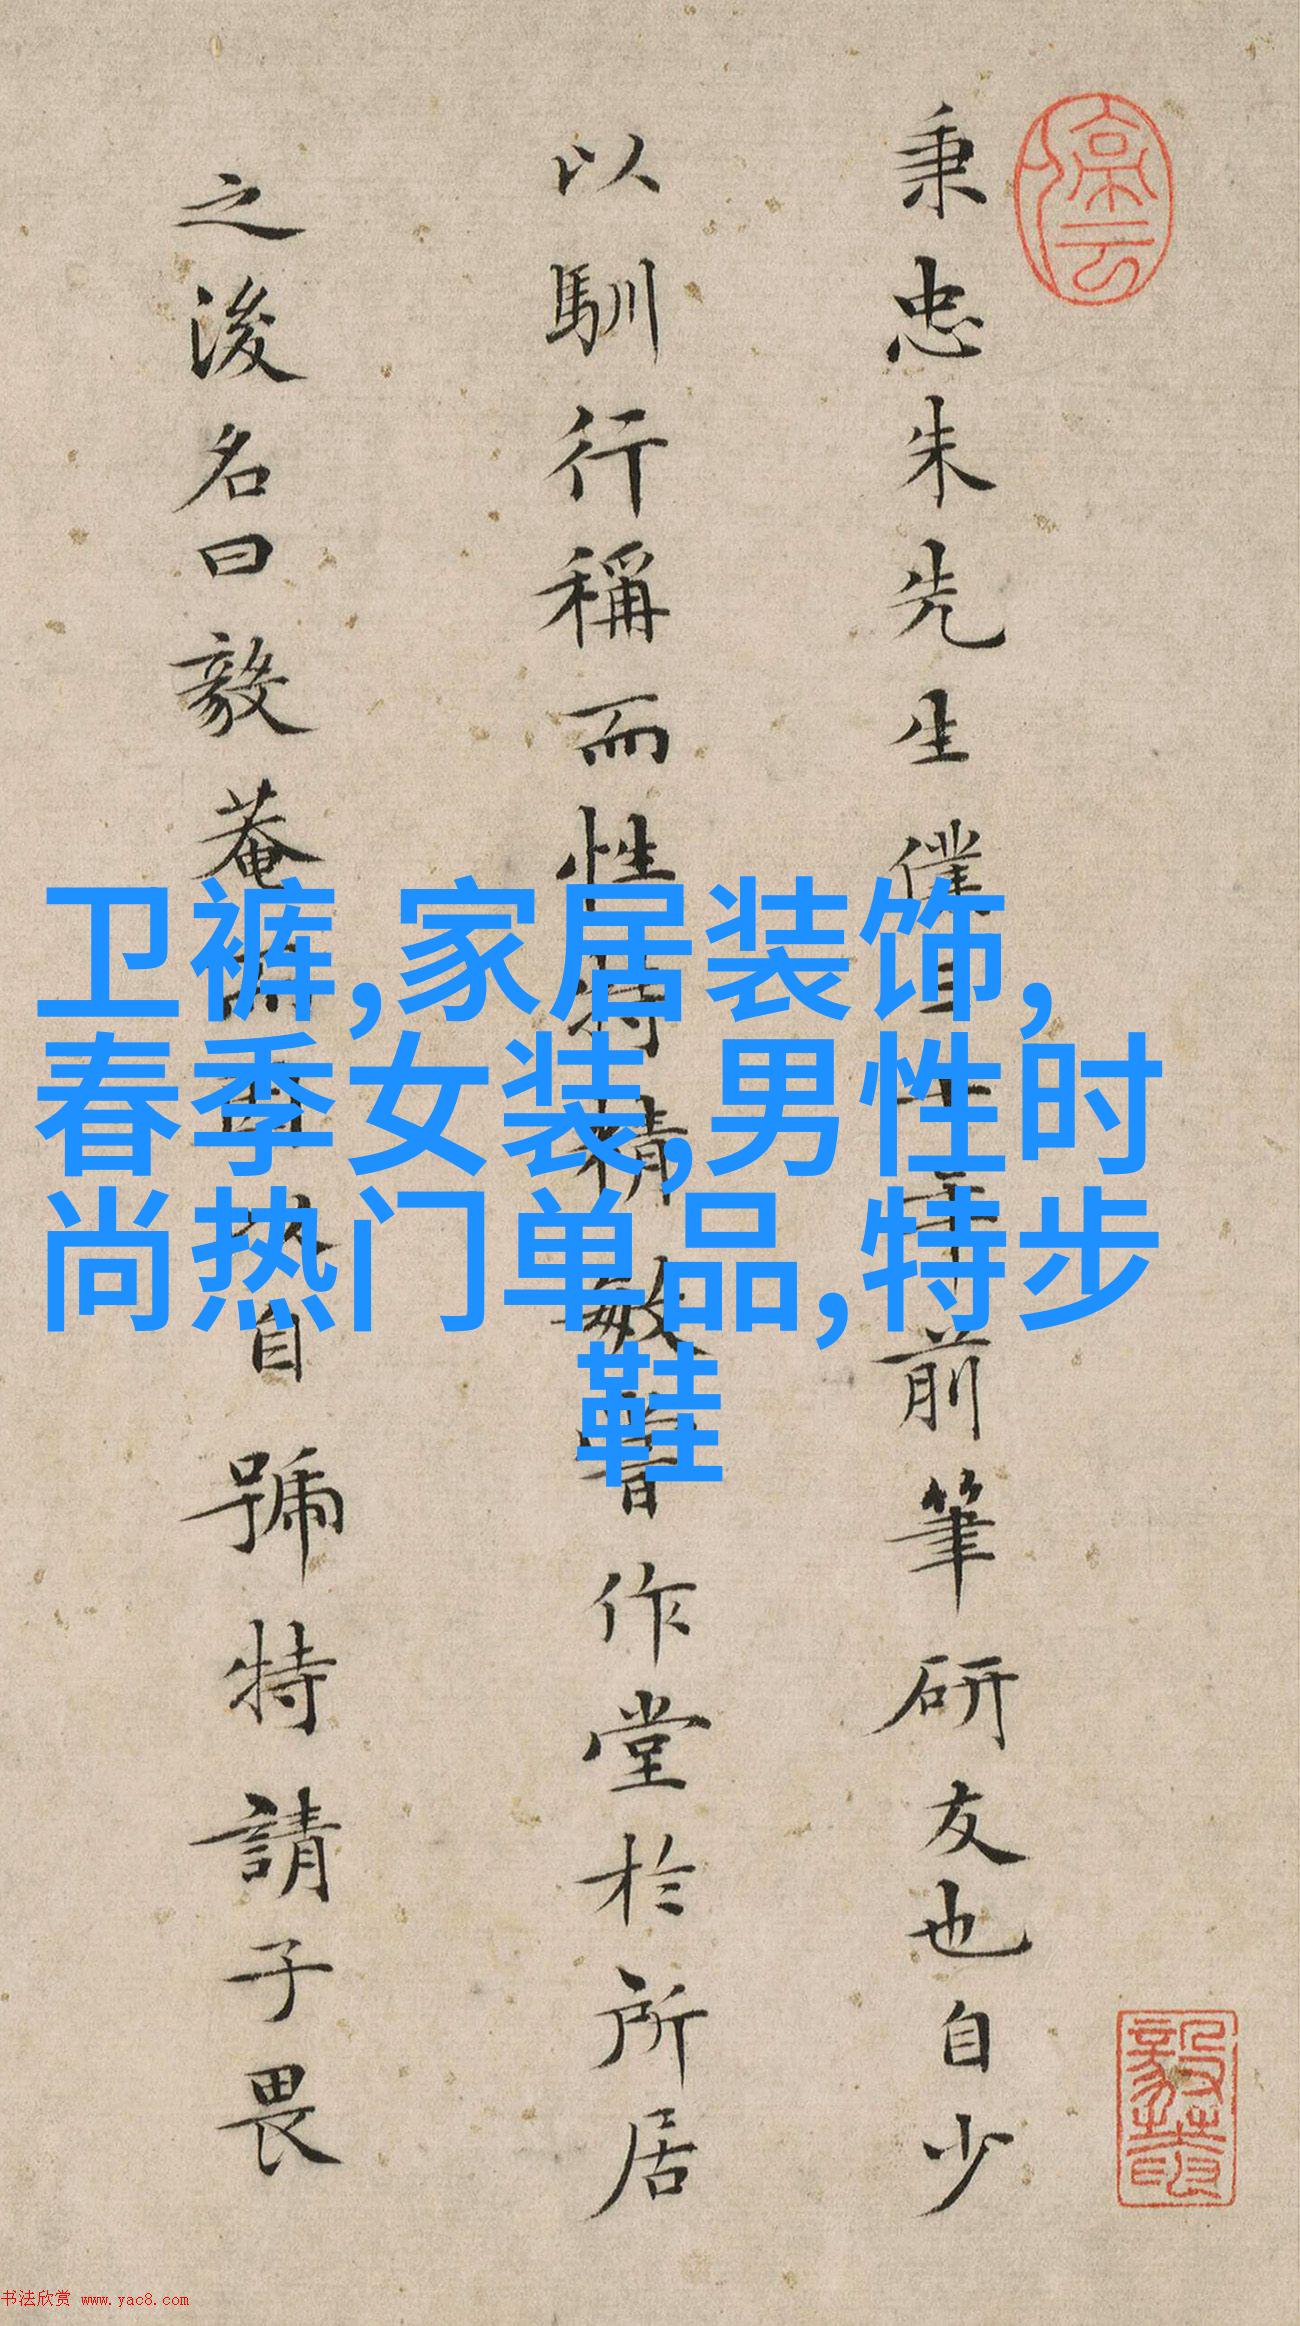 秉忠朱先生僕自十年前筆研友也自少
以馴行稱而性特精敏嘗作堂於所居
之後名曰毅菴而因以自號特請子畏
卫裤,家居装饰,
春季女装,男性时
尚热门单品,特步
鞋
书法欣赏 www.yac8.com